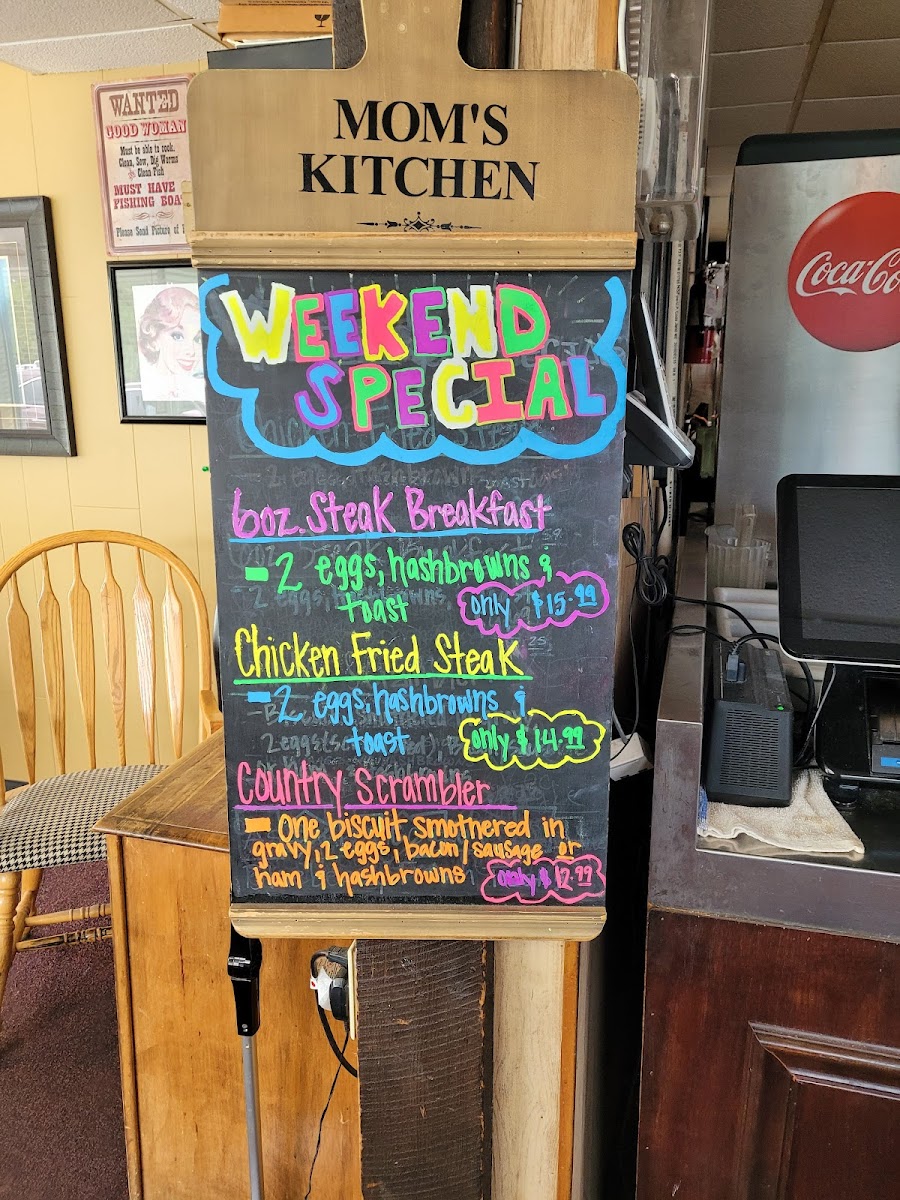 WANTED
GOOD WOMAN
Must be able to cook,
Clean, Sew, Dig Worms
& Clean Fish
MUST HAVE
FISHING BOA
Please Send Picture of
MOM'S
KITCHEN
WEEKEND
SPECIAL
6oz. Steak Breakfast
- 2 eggs, hashbrowns &
toast
only $15.99
Chicken Fried Steak
- 2 eggs, hashbrowns &
toast
only $14.99
Country Scrambler
- One biscuit, smothered in
gravy, 2 eggs, bacon/sausage or
ham & hashbrowns
only $12.99
Coca-Co